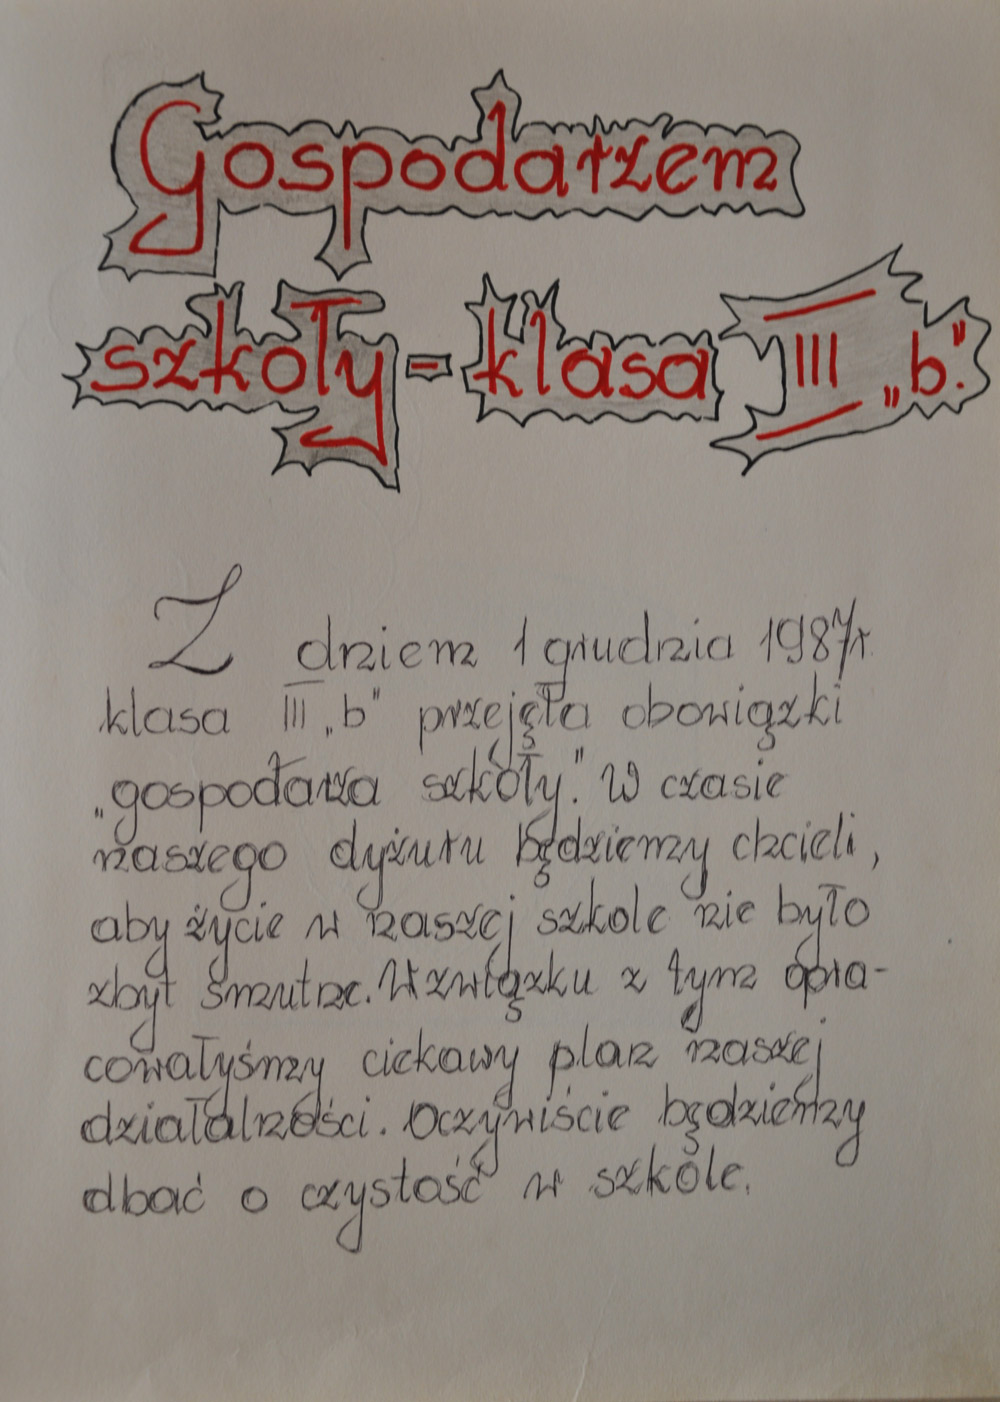 Gospodarzem
szkoły - klasa III „b”.
Z dniem 1 grudnia 1987r.
klasa III „b” przejęła obowiązki
„gospodarza szkoły”. W czasie
naszego dyżuru będziemy chcieli,
aby życie w naszej szkole nie było
zbyt smutne. W związku z tym opra-
cowałyśmy ciekawy plan naszej
działalności. Oczywiście będziemy
dbać o czystość w szkole.